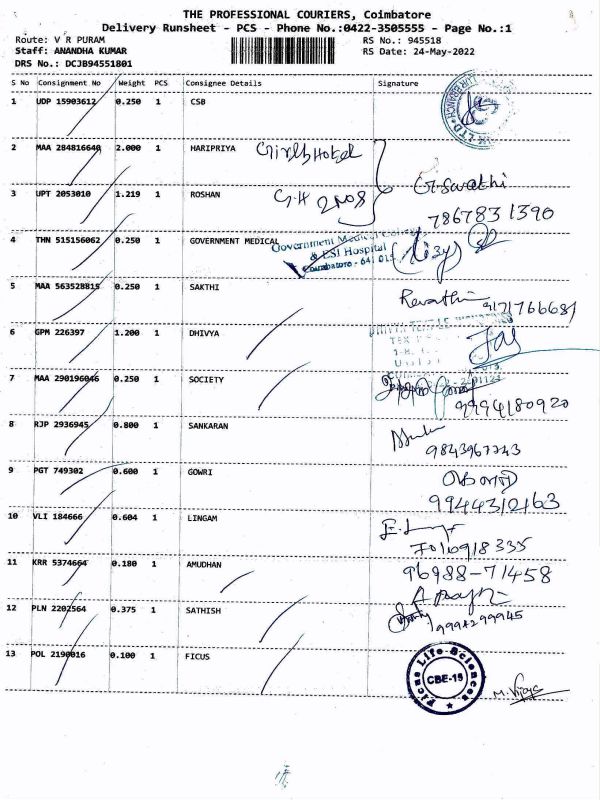 THE PROFESSIONAL COURIERS, Coimbatore
Delivery Runsheet - PCS - Phone No.:0422-3505555 - Page No.:1
Route: V R PURAM
RS No.: 945518
Staff: ANANDHA KUMAR
RS Date: 24-May-2022
DRS No.: DCJB94551801
S No Consignment No Weight PCS Consignee Details Signature
1 UDP 15903612 0.250 1 CSB
2 MAA 284816640 2.000 1 HARIPRIYA Girls Hotel
3 UPT 2053010 1.219 1 ROSHAN G.H
7867831390
4 THN 515156062 0.250 1 GOVERNMENT MEDICAL
Government Medical College
& ESI Hospital
Coimbatore - 641 015
5 MAA 563528815 0.250 1 SAKTHI Revathi
9171766681
6 GPM 226397 1.200 1 DHIVYA
7 MAA 290196046 0.250 1 SOCIETY
9994180920
8 RJP 2936945 0.800 1 SANKARAN
9843967743
9 PGT 749302 0.600 1 GOWRI
9944312163
10 VLI 184666 0.604 1 LINGAM
7010918335
11 KRR 5374664 0.180 1 AMUDHAN 96988-71458
12 PLN 2202564 0.375 1 SATHISH
9994299945
13 POL 2190016 0.100 1 FICUS
Ficus Life-Sciences
CBE-15
M. Vijaya